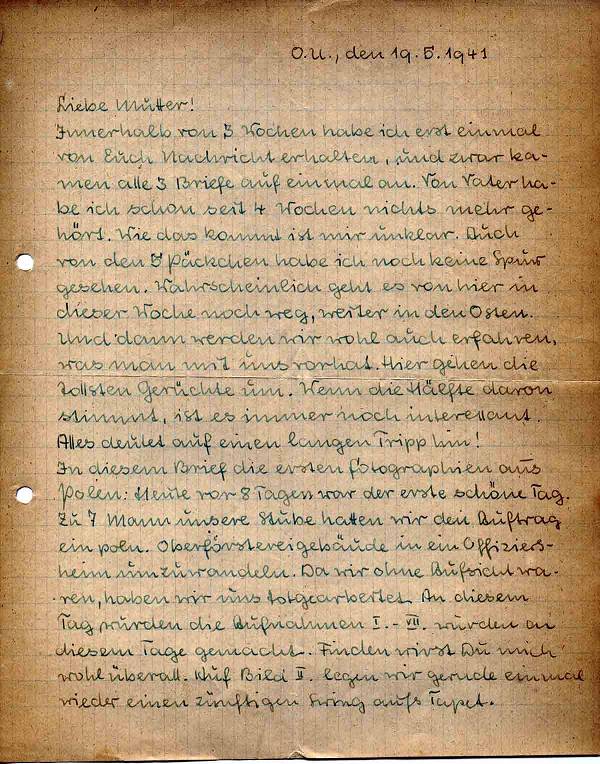 O.U., den 19.5.1941
Liebe Mutter!
Innerhalb von 3 Wochen habe ich erst einmal
von Euch Nachricht erhalten, und zwar ka-
men alle 3 Briefe auf einmal an. Von Vater ha-
be ich schon seit 4 Wochen nichts mehr ge-
hört. Wie das kommt ist mir unklar. Auch
von den 5 Päckchen habe ich noch keine Spur
gesehen. Wahrscheinlich geht es von hier in
dieser Woche noch weg, weiter in den Osten.
Und dann werden wir wohl auch erfahren,
was man mit uns vorhat. Hier gehen die
tollsten Gerüchte um. Wenn die Hälfte davon
stimmt, ist es immer noch interessant.
Alles deutet auf einen langen Tripp hin!
In diesem Brief die ersten Fotographien aus
Polen: Heute vor 8 Tagen war der erste schöne Tag.
Zu 7 Mann unsere Stube hatten wir den Auftrag
ein poln. Oberförstereigebäude in ein Offiziers-
heim umzuwandeln. Da wir ohne Aufsicht wa-
ren, haben wir uns totgearbeitet. An diesem
Tag wurden die Aufnahmen I.-VII. wurden an
diesem Tage gemacht. Finden wirst Du mich
wohl überall. Auf Bild II. legen wir gerade einmal
wieder einen zünftigen Swing aufs Tapet.